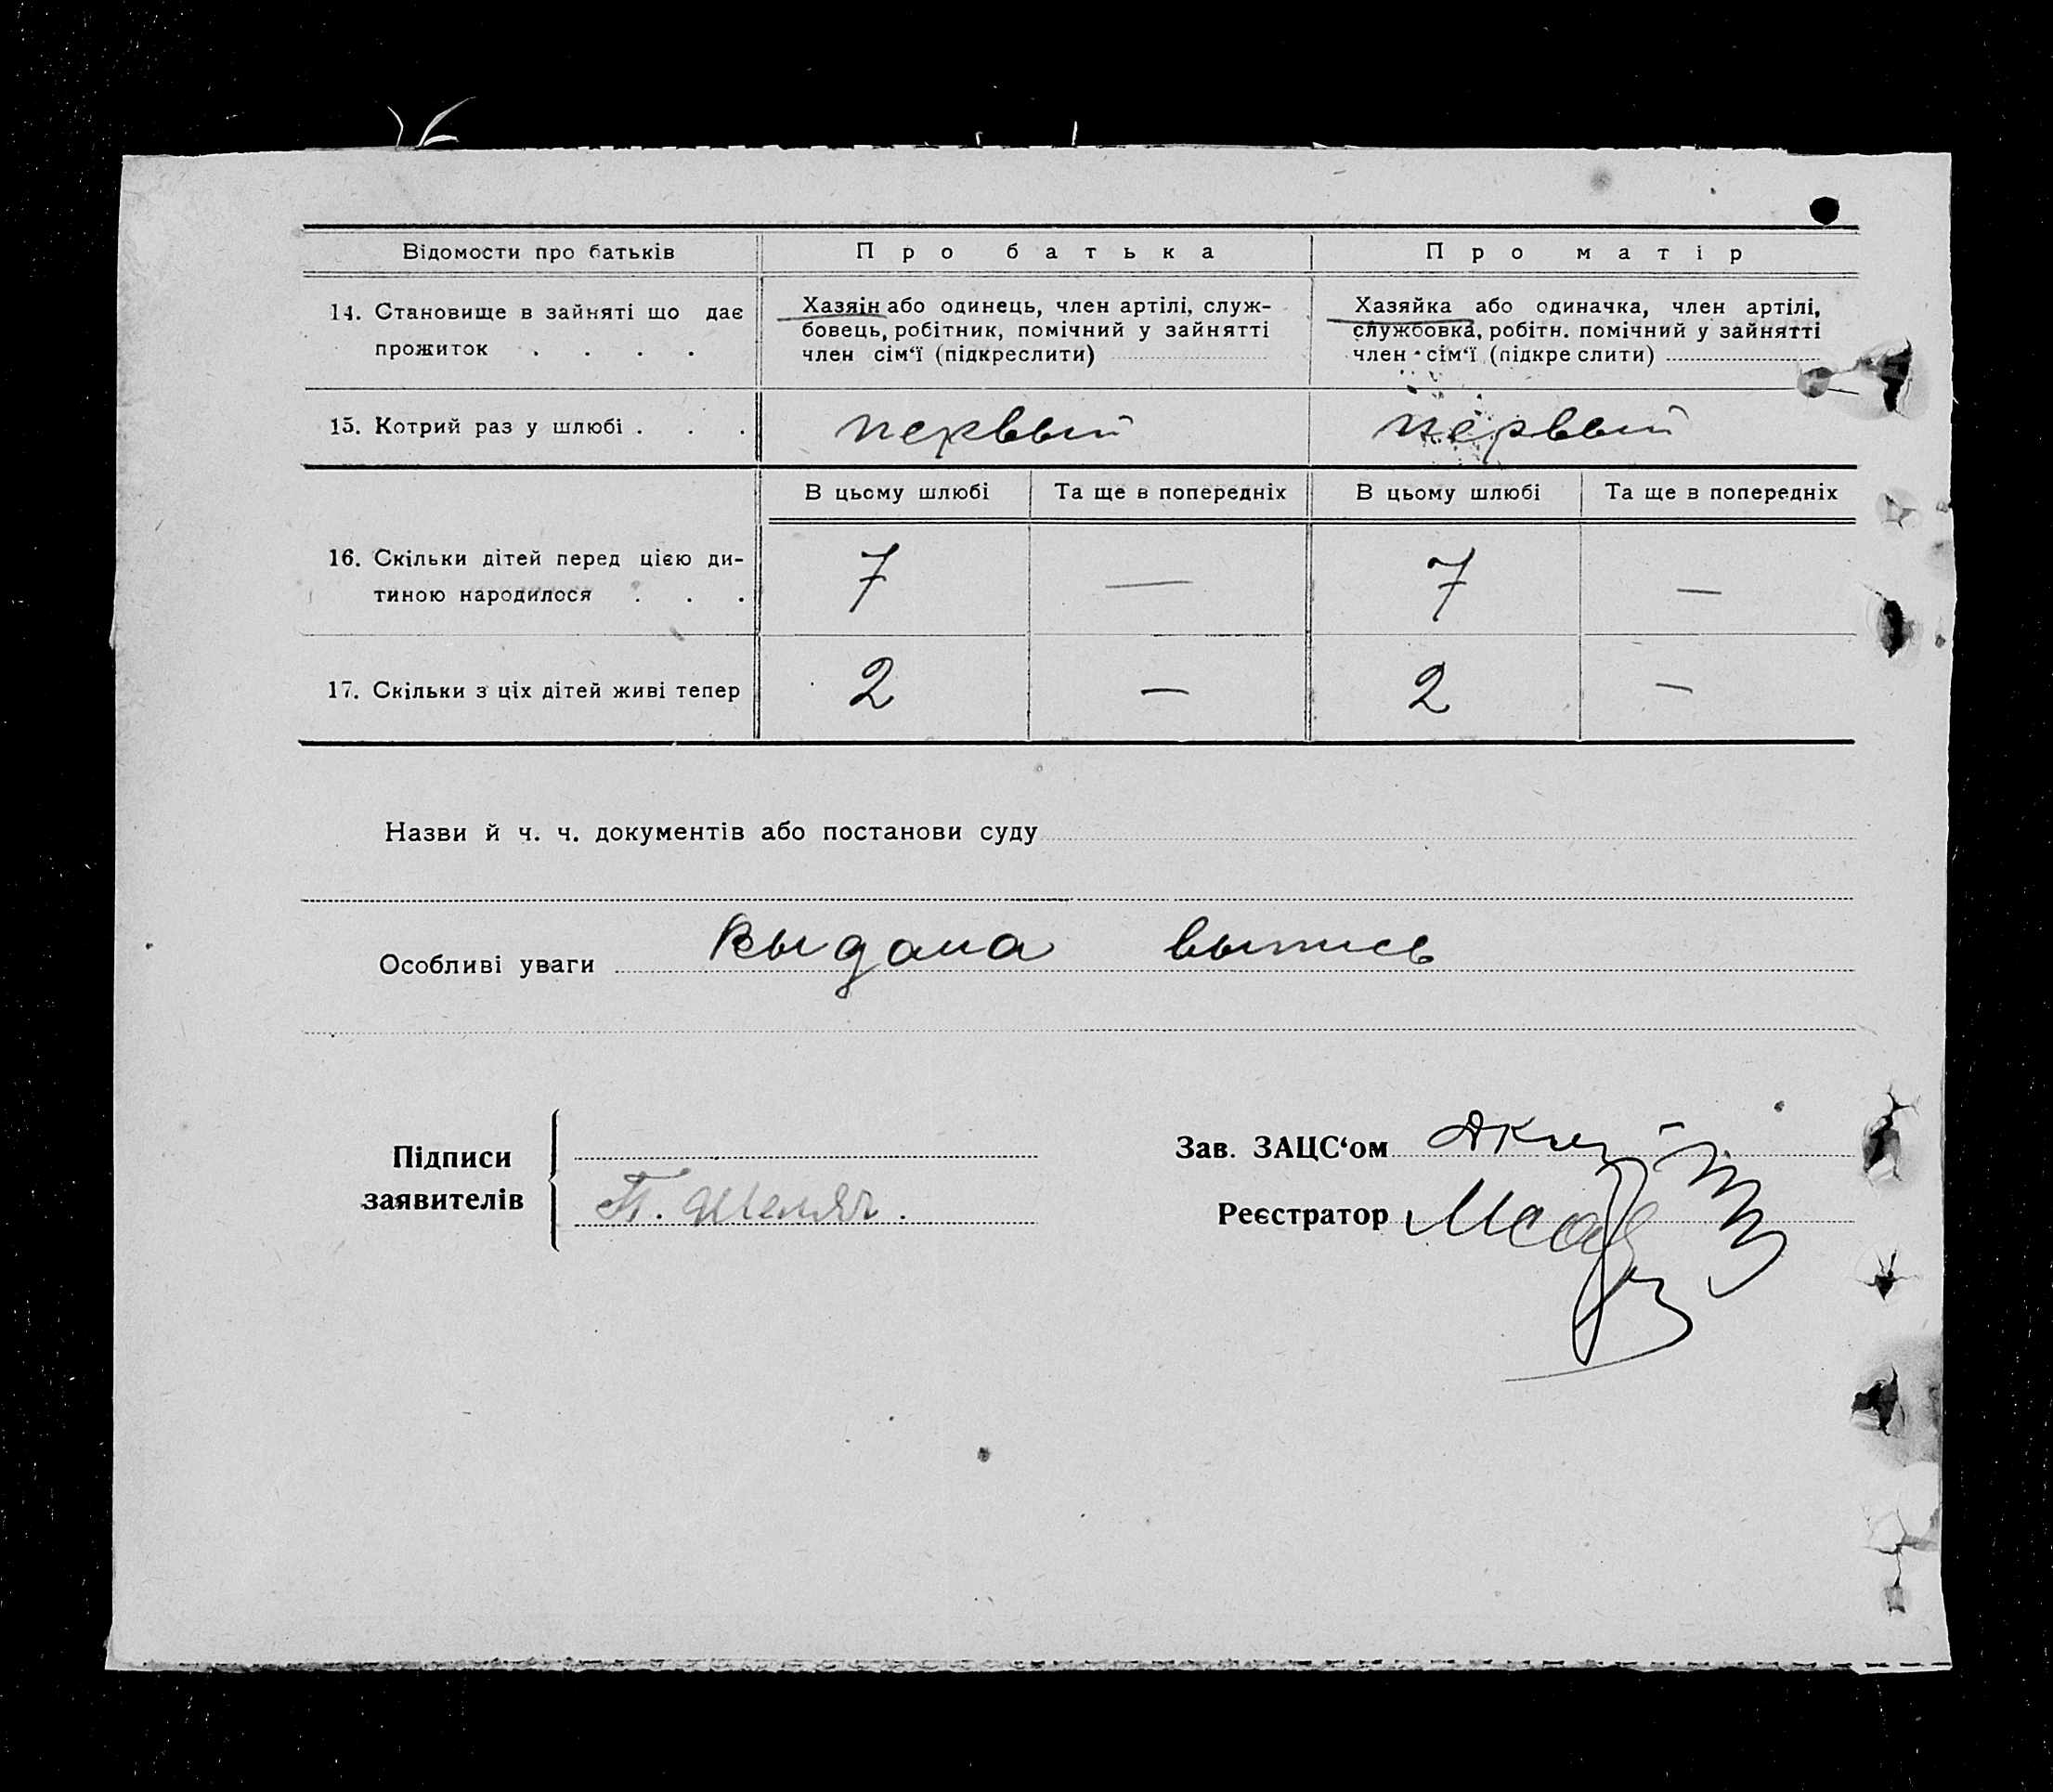 Відомости про батьків Про батька Про матір
14. Становище в зайняті що дає
прожиток . . . .
Хазяін або одинець, член артілі, служ-
бовець, робітник, помічний у зайнятті
член сім'ї (підкреслити)
Хазяйка або одиначка, член артілі,
службовка, робітн. помічний у зайнятті
член сім'ї (підкре слити)
15. Котрий раз у шлюбі . . . первый первый
В цьому шлюбі Та ще в попередніх В цьому шлюбі Та ще в попередніх
16. Скільки дітей перед цією ди-
тиною народилося . . .
7 — 7 —
17. Скільки з ціх дітей живі тепер 2 — 2 —
Назви й ч. ч. документів або постанови суду
Особливі уваги Выдана выпись
Підписи
заявителів
Зав. ЗАЦС'ом
Реєстратор